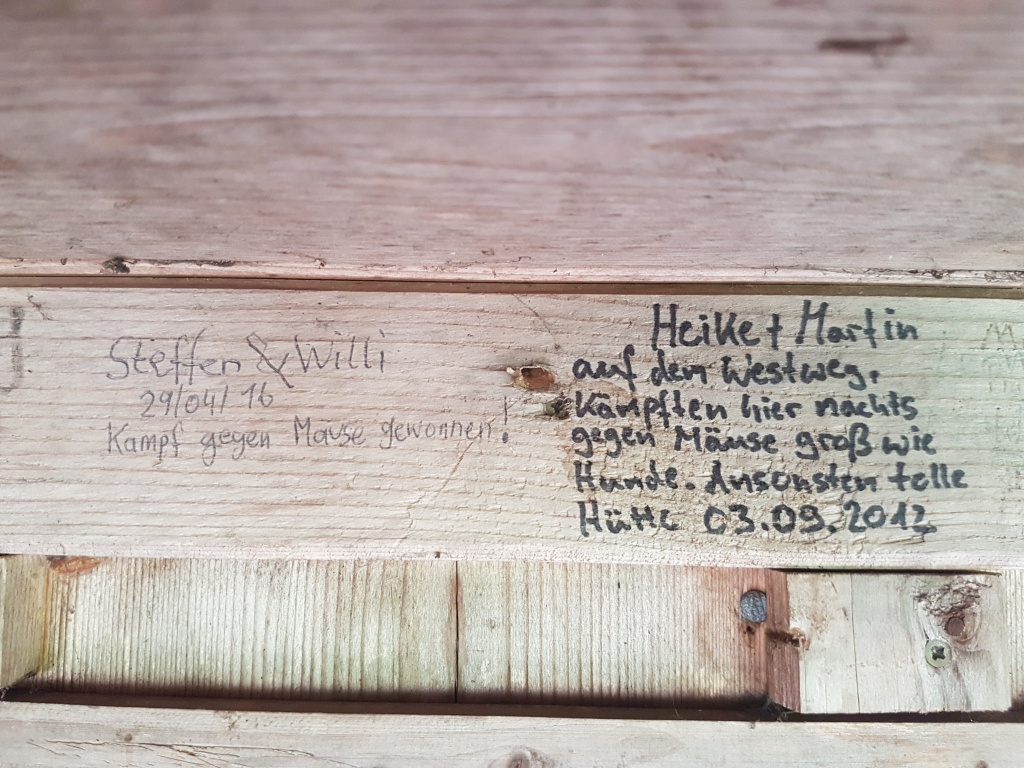 Steffen & Willi
29/04/16
Kampf gegen Mause gewonnen!
Heike + Martin
auf dem Westweg.
Kämpften hier nachts
gegen Mäuse groß wie
Hunde. Ansonsten tolle
Hütte 03.09.2012